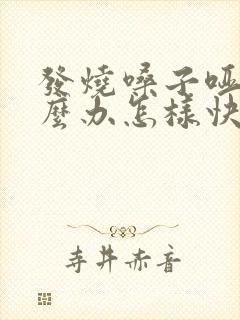 發燒嗓子啞
麼办怎樣快
寺井赤音